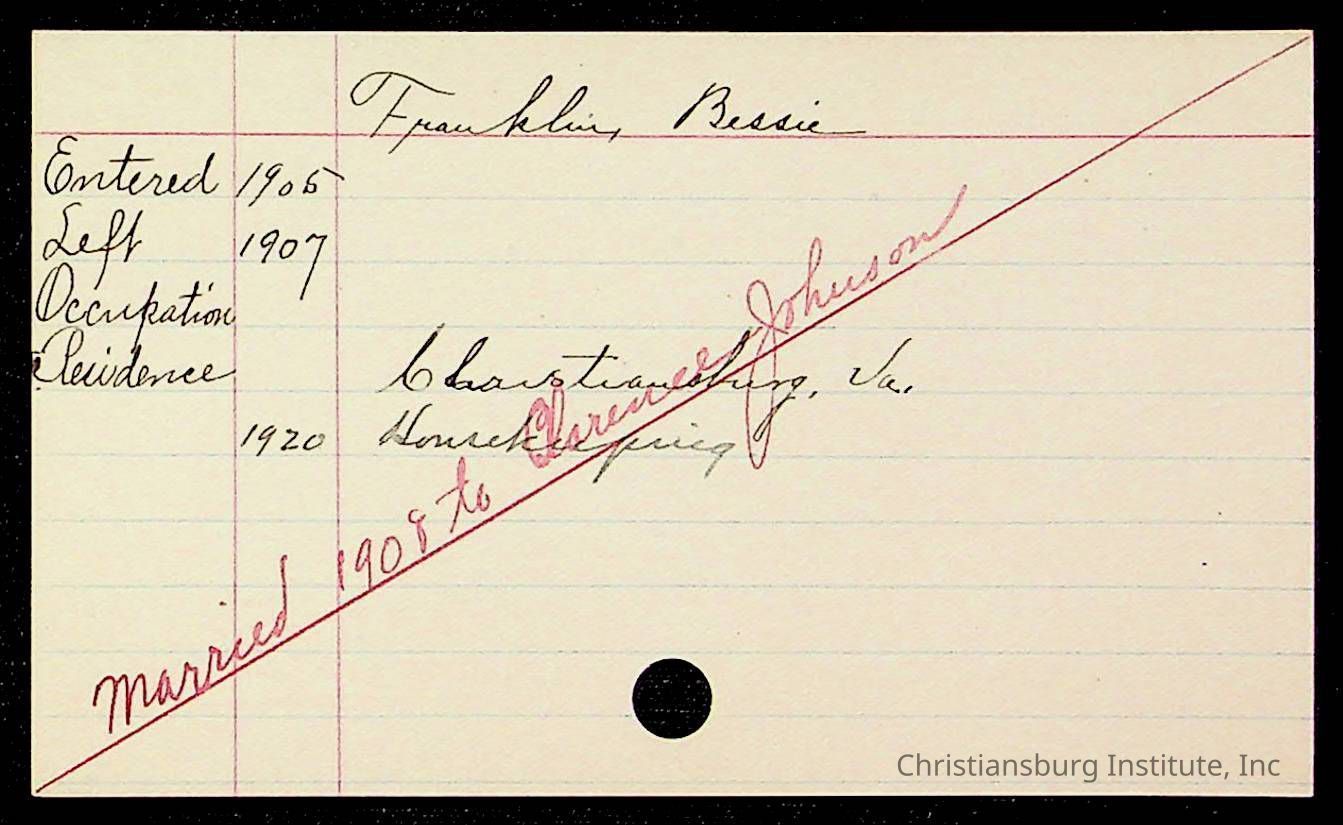 Franklin, Bessie
Entered 1905
Left 1907
Occupation
Residence Christiansburg, Va.
1920 Housekeeping
Married 1908 to Clarence Johnson
Christiansburg Institute, Inc